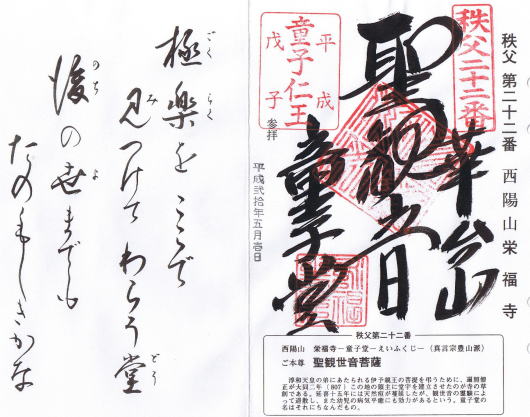 秩父 第二十二番 西陽山 栄福寺
秩父二十二番
華台山
聖観世音
童子堂
平成
童子仁王
戊子
参拝
平成弐拾年五月壱日
極楽をここで
ごくらく
見つけてわらう堂
み
どう
後の世までも
のち
よ
たのもしきかな
秩父第二十二番
西陽山 栄福寺−童子堂−えいふくじ−（真言宗豊山派）
ご本尊 聖観世音菩薩
淳和天皇の弟にあたられる伊予親王の菩提を弔うために、遍照僧
正が大同二年（807）この地の領主に堂宇を建立させたのが寺の草
創である。延喜十五年には天然痘が蔓延したが、観世音の霊験によ
って退散し、また幼児の病気平癒にも効力があるという。童子堂の
名はそれにちなんだもの。